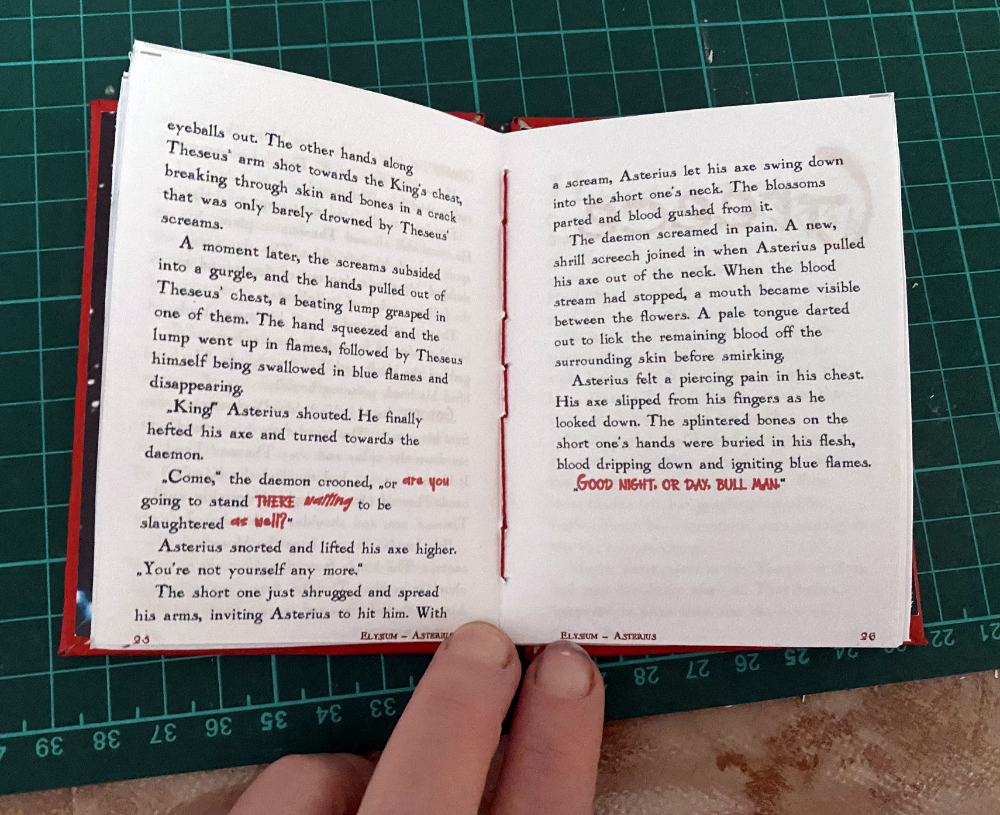 eyeballs out. The other hands along
Theseus' arm shot towards the King's chest,
breaking through skin and bones in a crack
that was only barely drowned by Theseus'
screams.
A moment later, the screams subsided
into a gurgle, and the hands pulled out of
Theseus' chest, a beating lump grasped in
one of them. The hand squeezed and the
lump went up in flames, followed by Theseus
himself being swallowed in blue flames and
disappearing.
„King!" Asterius shouted. He finally
hefted his axe and turned towards the
daemon.
„Come," the daemon crooned, „or are you
going to stand THERE waiting to be
slaughtered as well?"
Asterius snorted and lifted his axe higher.
„You're not yourself any more."
The short one just shrugged and spread
his arms, inviting Asterius to hit him. With
25 Elysium – Asterius
a scream, Asterius let his axe swing down
into the short one's neck. The blossoms
parted and blood gushed from it.
The daemon screamed in pain. A new,
shrill screech joined in when Asterius pulled
his axe out of the neck. When the blood
stream had stopped, a mouth became visible
between the flowers. A pale tongue darted
out to lick the remaining blood off the
surrounding skin before smirking.
Asterius felt a piercing pain in his chest.
His axe slipped from his fingers as he
looked down. The splintered bones on the
short one's hands were buried in his flesh,
blood dripping down and igniting blue flames.
„GOOD NIGHT, OR DAY, BULL MAN."
Elysium – Asterius 26
39 38 37 36 35 34 33 28 27 26 25 24 22 21